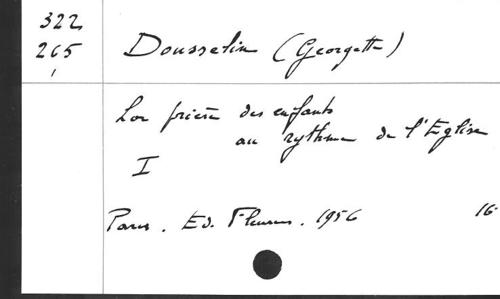 322
265
Dousselin (Georgette)
La prière des enfants
au rythme de l'Eglise
I
Paris. Ed. Fleurus. 1956 16-